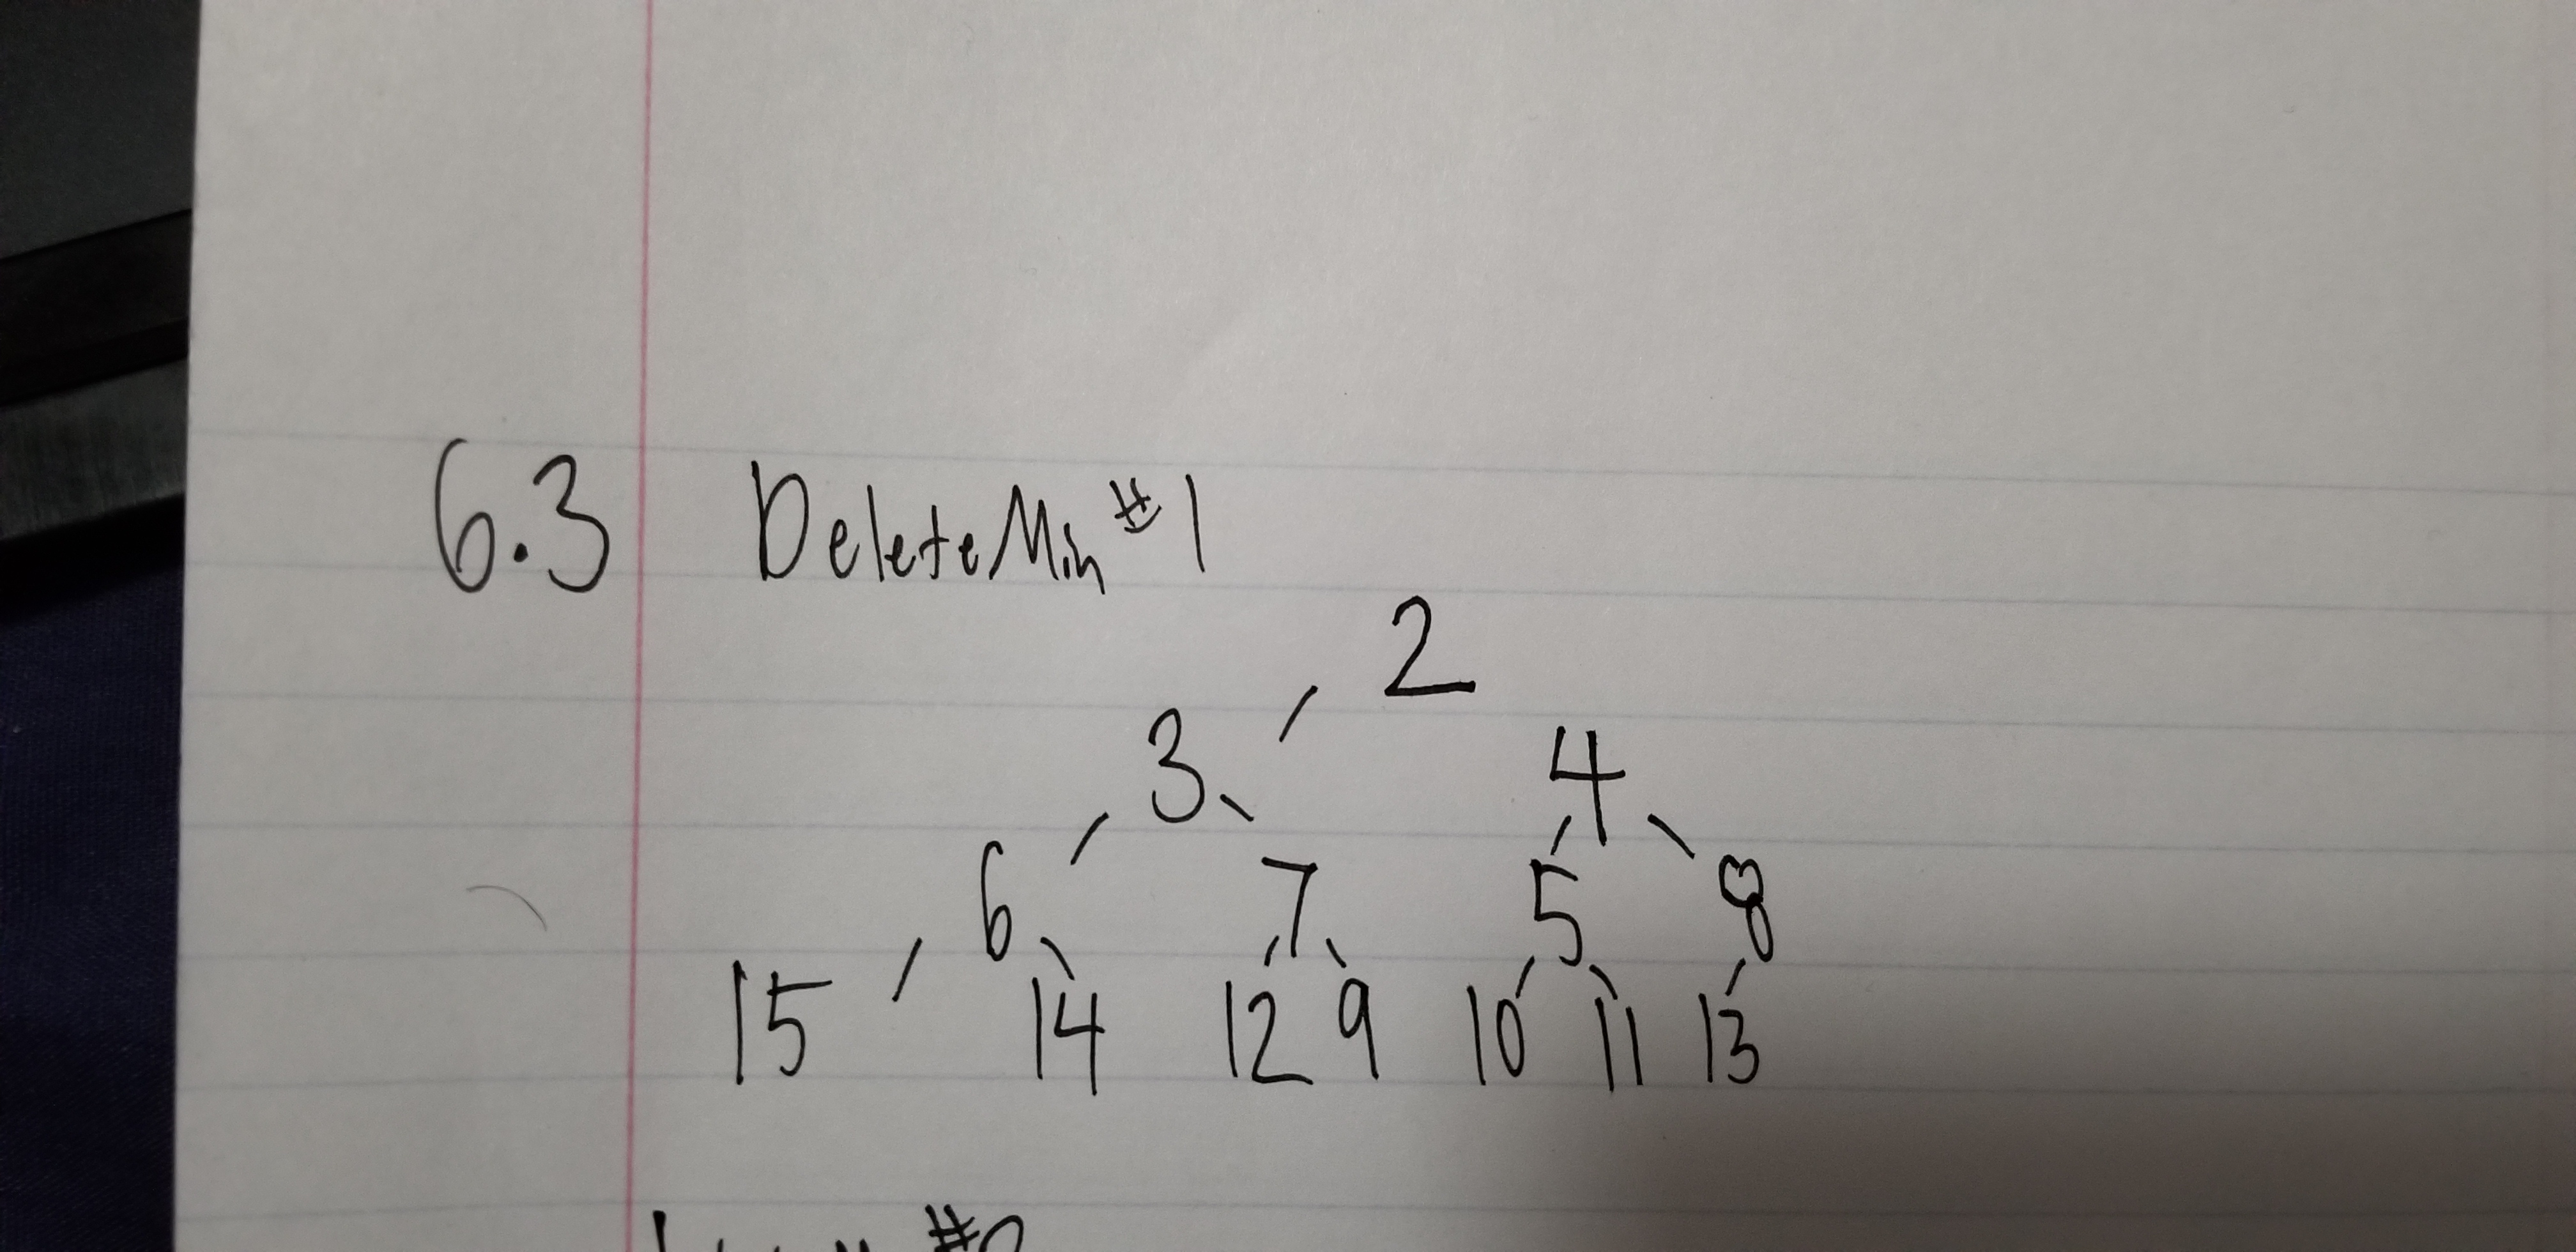 6.3 DeleteMin #1
2
3 4
6 7 5 8
15 14 12 9 10 11 13